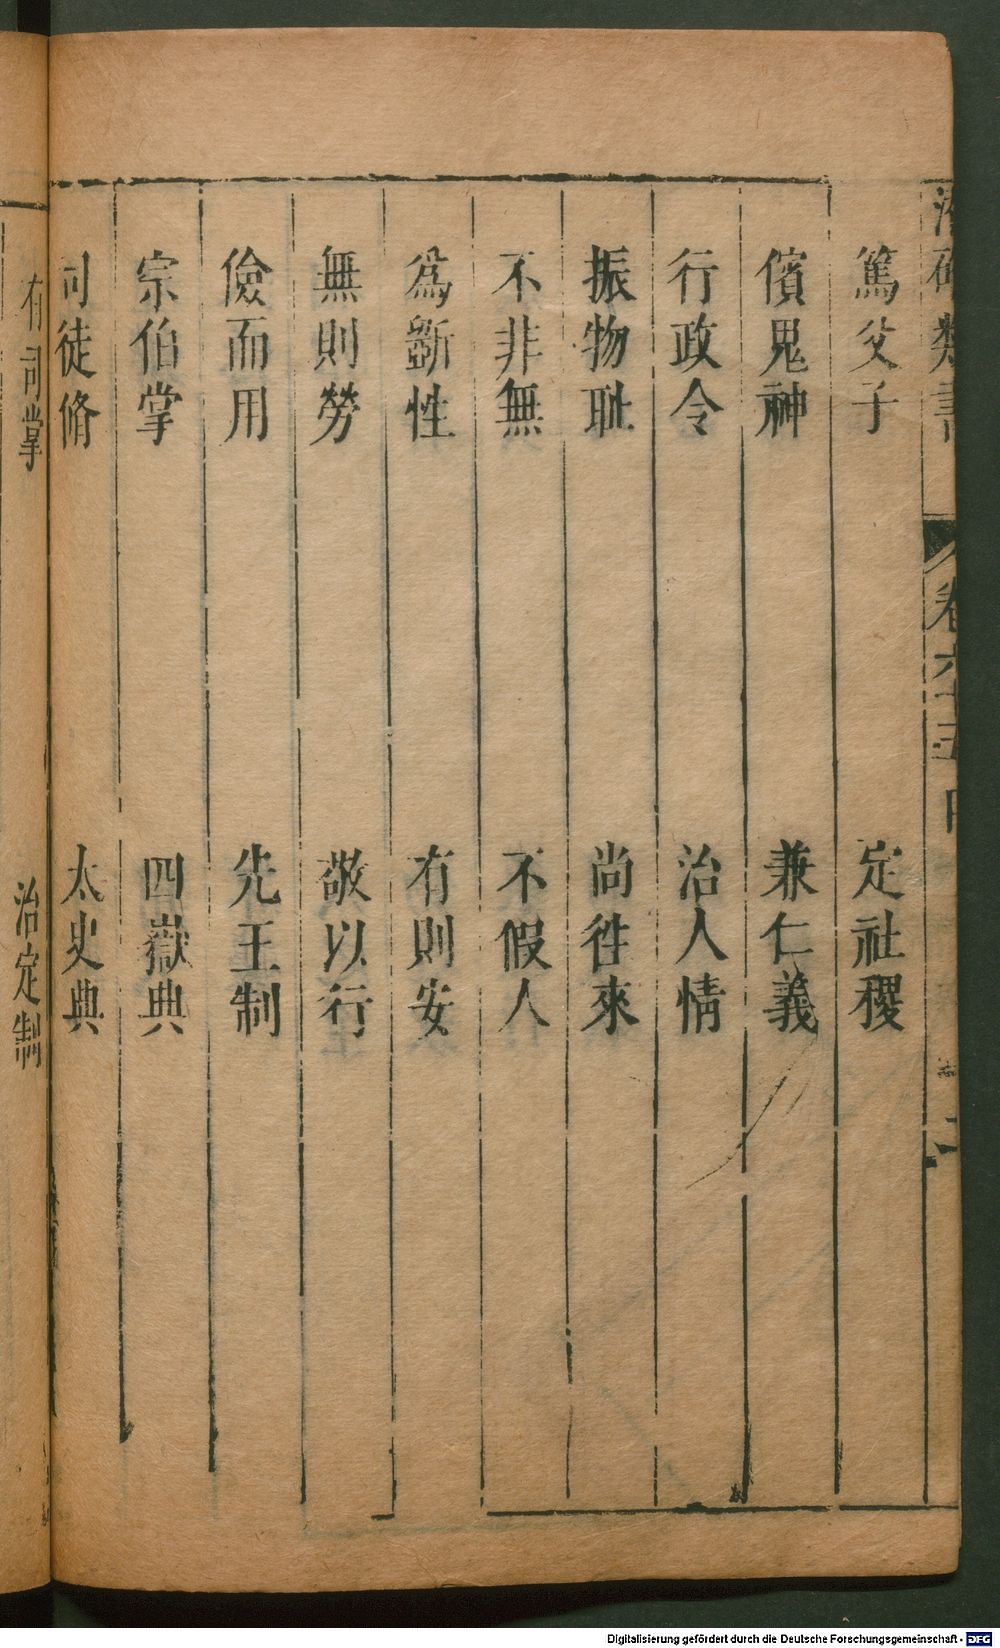 卷六十五
篤父子　定社稷
儐鬼神　兼仁義
行政令　治人情
振物耻　尚徃來
不非無　不假人
為斲性　有則安
無則勞　敬以行
儉而用　先王制
宗伯掌　四嶽典
司徒脩　太史典
有司掌　治定制
Digitalisierung gefördert durch die Deutsche Forschungsgemeinschaft - DFG